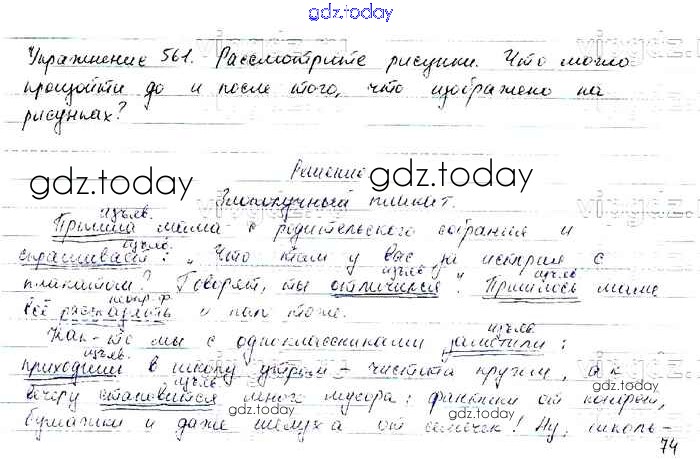 gdz.today
Упражнение 561. Рассмотрите рисунки. Что могло
произойти до и после того, что изображено на
рисунках?
Решение
gdz.today gdz.today
Злополучный плакат.
изъяв.
Пришла мама с родительского собрания и
изъяв.
спрашивает: „Что там у вас за история с
изъяв. изъяв
плакатом? Говорят, ты отличился". Пришлось маме
неопр. ф.
всё рассказать и пап тоже.
изъяв
Как-то мы с одноклассниками заметили:
изъяв.
приходишь в школу утром - чистота кругом, а к
изъяв.
вечеру становится много мусора: фантики от конфет,
gdz.today gdz.today
бумажки и даже шелуха от семечек! Ну, школь-
74
gdz.today